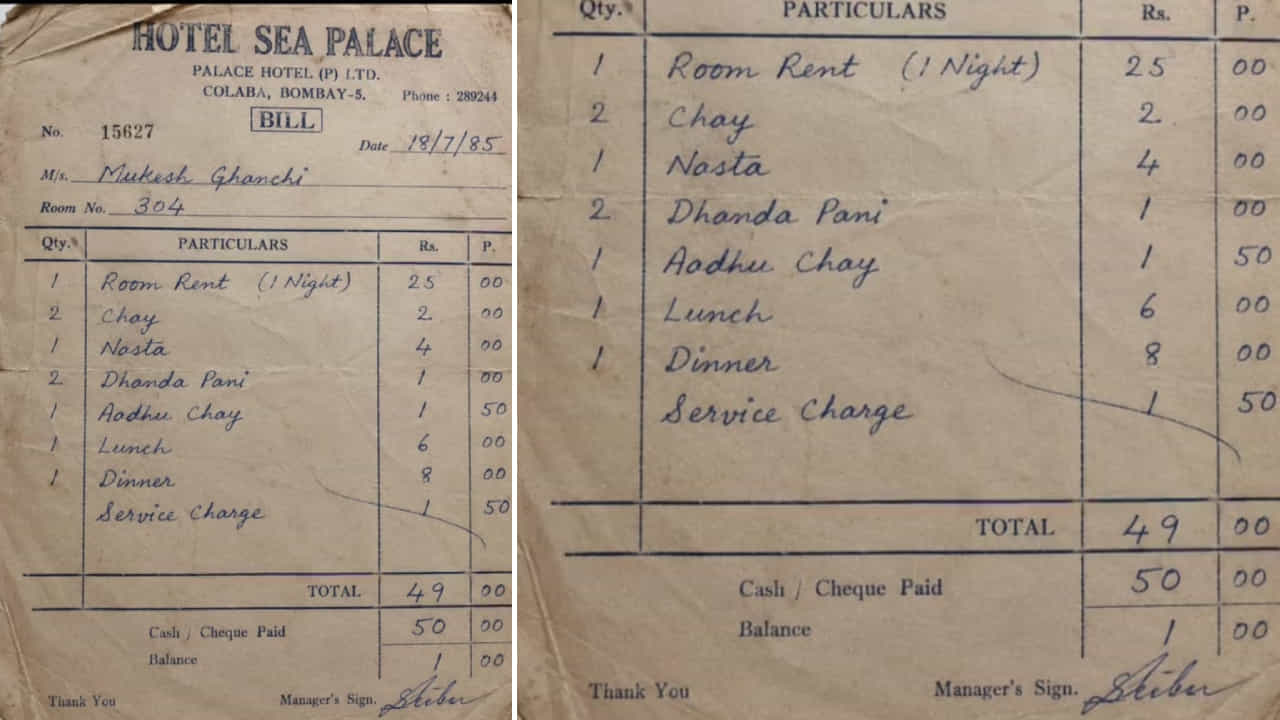 HOTEL SEA PALACE
PALACE HOTEL (P) LTD.
COLABA, BOMBAY-5. Phone : 289244
BILL
No. 15627
Date 18/7/85
M/s. Mukesh Ghanchi
Room No. 304
Qty. PARTICULARS Rs. P.
1 Room Rent (1 Night) 25 00
2 Chay 2 00
1 Nasta 4 00
2 Dhanda Pani 1 00
1 Aadhu Chay 1 50
1 Lunch 6 00
1 Dinner 8 00
Service Charge 1 50
TOTAL 49 00
Cash / Cheque Paid 50 00
Balance 1 00
Thank You Manager's Sign.
Qty. PARTICULARS Rs. P.
1 Room Rent (1 Night) 25 00
2 Chay 2 00
1 Nasta 4 00
2 Dhanda Pani 1 00
1 Aadhu Chay 1 50
1 Lunch 6 00
1 Dinner 8 00
Service Charge 1 50
TOTAL 49 00
Cash / Cheque Paid 50 00
Balance 1 00
Thank You Manager's Sign.